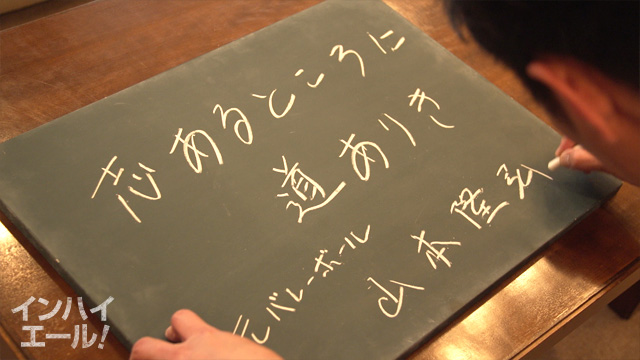 志あるところに
道ありき
元バレーボール
山本隆弘
インハイ
エール!